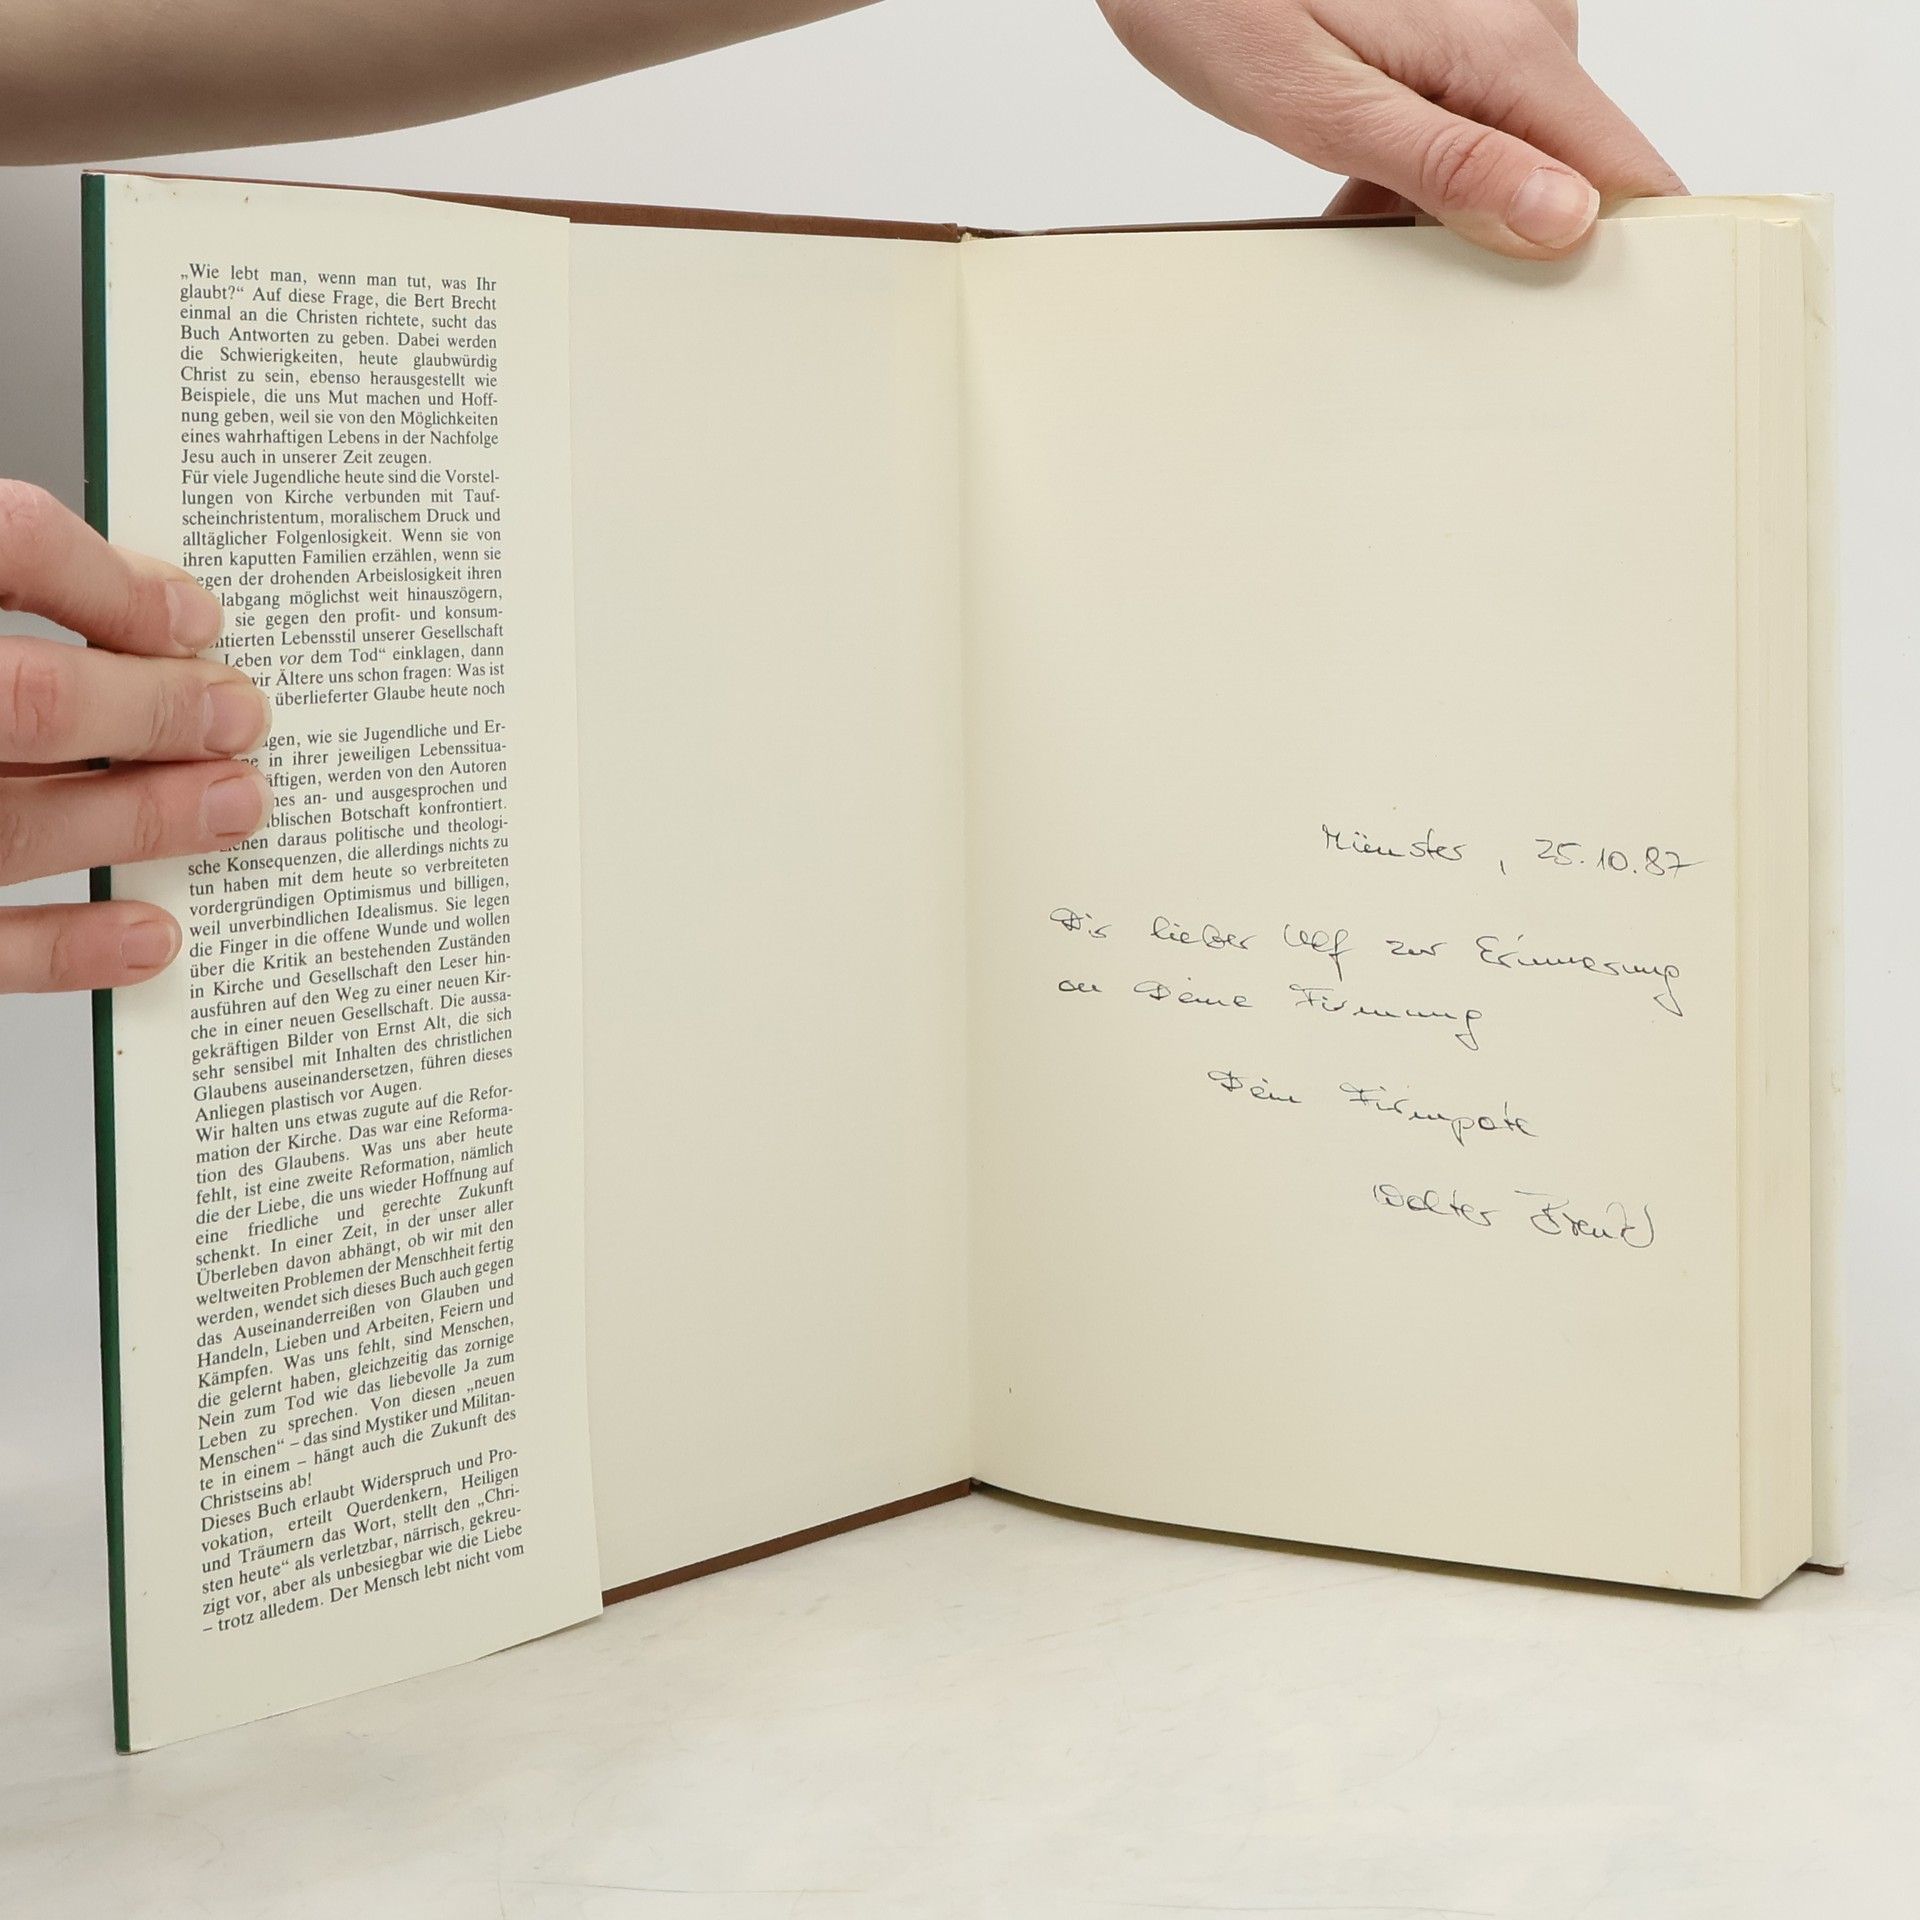 „Wie lebt man, wenn man tut, was Ihr
glaubt?“ Auf diese Frage, die Bert Brecht
einmal an die Christen richtete, sucht das
Buch Antworten zu geben. Dabei werden
die Schwierigkeiten, heute glaubwürdig
Christ zu sein, ebenso herausgestellt wie
Beispiele, die uns Mut machen und Hoff-
nung geben, weil sie von den Möglichkeiten
eines wahrhaftigen Lebens in der Nachfolge
Jesu auch in unserer Zeit zeugen.
Für viele Jugendliche heute sind die Vorstel-
lungen von Kirche verbunden mit Tauf-
scheinchristentum, moralischem Druck und
alltäglicher Folgenlosigkeit. Wenn sie von
ihren kaputten Familien erzählen, wenn sie
egen der drohenden Arbeislosigkeit ihren
labgang möglichst weit hinauszögern,
sie gegen den profit- und konsum-
ntierten Lebensstil unserer Gesellschaft
Leben vor dem Tod“ einklagen, dann
wir Ältere uns schon fragen: Was ist
überlieferter Glaube heute noch
agen, wie sie Jugendliche und Er-
ne in ihrer jeweiligen Lebenssitua-
äftigen, werden von den Autoren
hes an- und ausgesprochen und
iblischen Botschaft konfrontiert.
ziehen daraus politische und theologi-
sche Konsequenzen, die allerdings nichts zu
tun haben mit dem heute so verbreiteten
vordergründigen Optimismus und billigen,
weil unverbindlichen Idealismus. Sie legen
die Finger in die offene Wunde und wollen
über die Kritik an bestehenden Zuständen
in Kirche und Gesellschaft den Leser hin-
ausführen auf den Weg zu einer neuen Kir-
che in einer neuen Gesellschaft. Die aussa-
gekräftigen Bilder von Ernst Alt, die sich
sehr sensibel mit Inhalten des christlichen
Glaubens auseinandersetzen, führen dieses
Anliegen plastisch vor Augen.
Wir halten uns etwas zugute auf die Refor-
mation der Kirche. Das war eine Reforma-
tion des Glaubens. Was uns aber heute
fehlt, ist eine zweite Reformation, nämlich
die der Liebe, die uns wieder Hoffnung auf
eine friedliche und gerechte Zukunft
schenkt. In einer Zeit, in der unser aller
Überleben davon abhängt, ob wir mit den
weltweiten Problemen der Menschheit fertig
werden, wendet sich dieses Buch auch gegen
das Auseinanderreißen von Glauben und
Handeln, Lieben und Arbeiten, Feiern und
Kämpfen. Was uns fehlt, sind Menschen,
die gelernt haben, gleichzeitig das zornige
Nein zum Tod wie das liebevolle Ja zum
Leben zu sprechen. Von diesen „neuen
Menschen“ – das sind Mystiker und Militan-
te in einem – hängt auch die Zukunft des
Christseins ab!
Dieses Buch erlaubt Widerspruch und Pro-
vokation, erteilt Querdenkern, Heiligen
und Träumern das Wort, stellt den „Chri-
sten heute“ als verletzbar, närrisch, gekreu-
zigt vor, aber als unbesiegbar wie die Liebe
– trotz alledem. Der Mensch lebt nicht vom
Münster, 25.10.87
Dir lieber Ulf zur Erinnerung
an Deine Firmung
Dein Firmpate
Walter